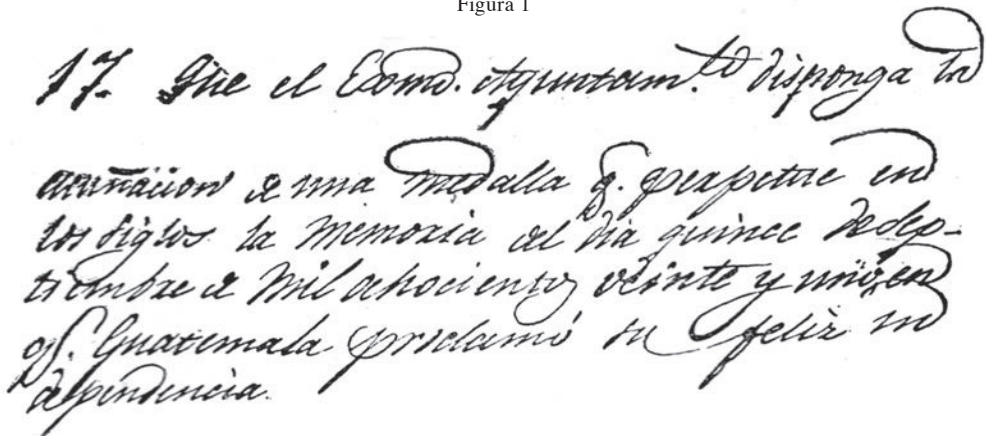 Figura 1
17. Que el Exmo. Ayuntam.to disponga la
acuñacion de una medalla q. perpetue en
los siglos la memoria del dia quince de Sep-
tiembre de mil ochocientos veinte y uno, en
q. Guatemala proclamó su feliz in
dependencia.